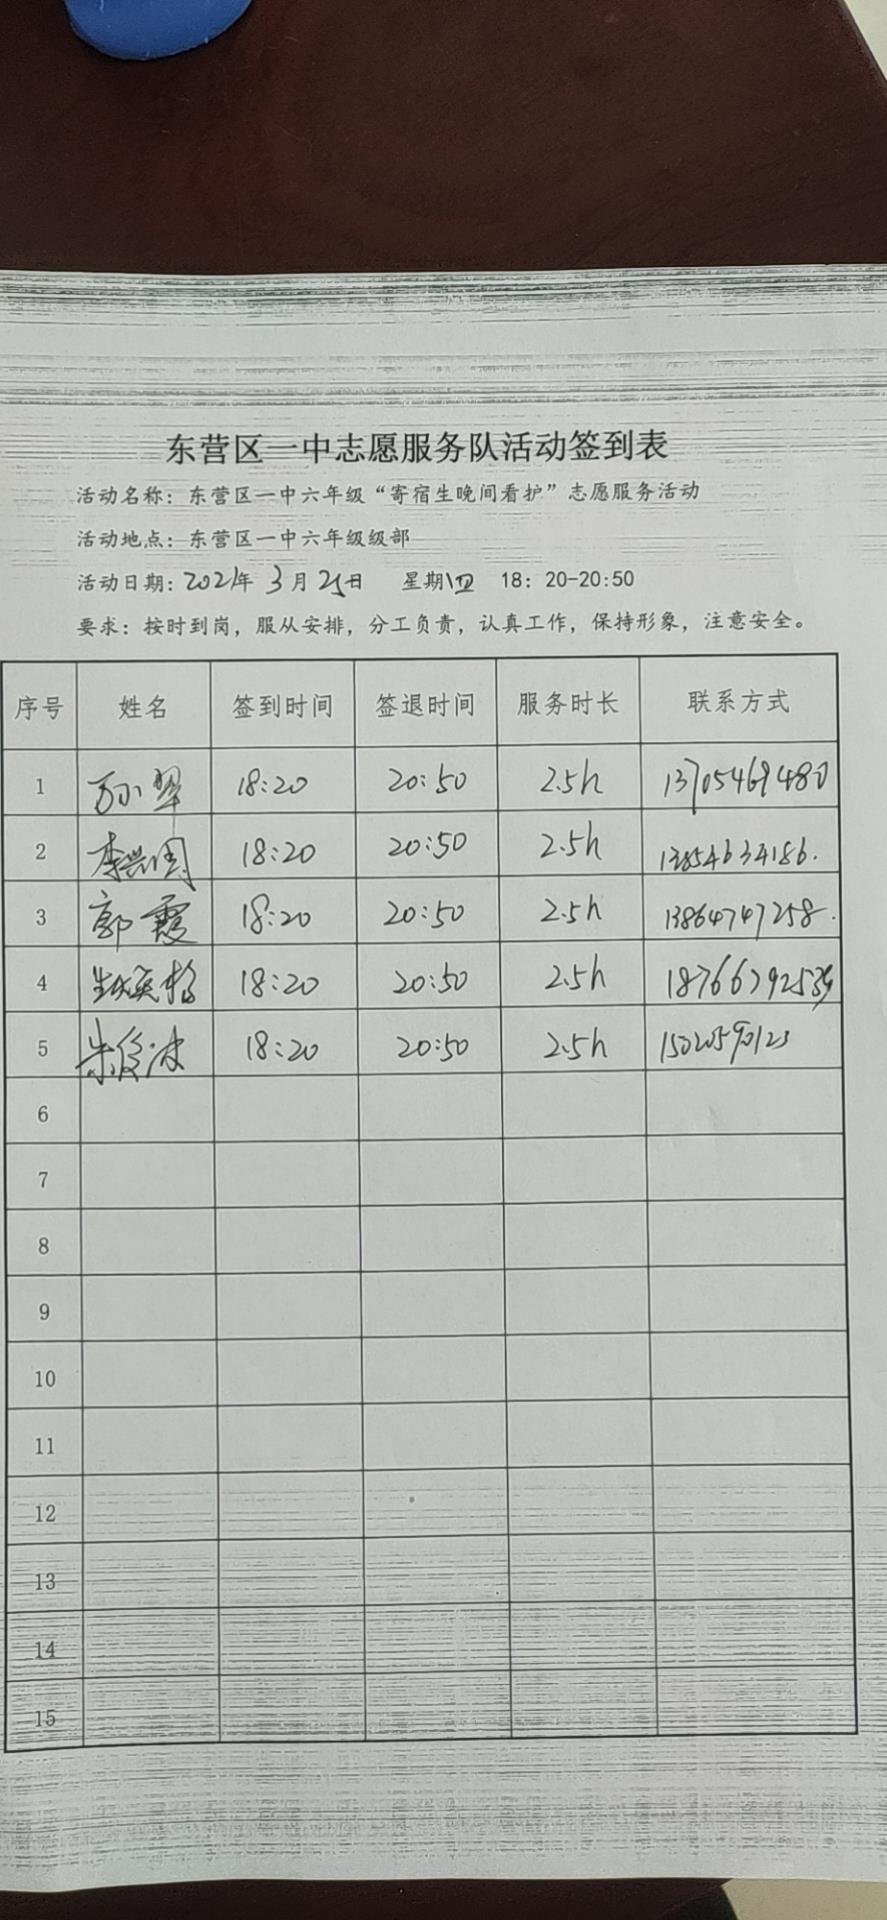 东营区一中志愿服务队活动签到表
活动名称：东营区一中六年级“寄宿生晚间看护”志愿服务活动
活动地点：东营区一中六年级级部
活动日期：2021年 3月25日 星期四 18：20-20:50
要求：按时到岗，服从安排，分工负责，认真工作，保持形象，注意安全。
序号 姓名 签到时间 签退时间 服务时长 联系方式
1 18:20 20:50 2.5h 13705469480
2 18:20 20:50 2.5h 13854634186.
3 郭霞 18:20 20:50 2.5h 13864747258.
4 18:20 20:50 2.5h
5 朱俊波 18:20 20:50 2.5h 15020590123
6
7
8
9
10
11
12
13
14
15